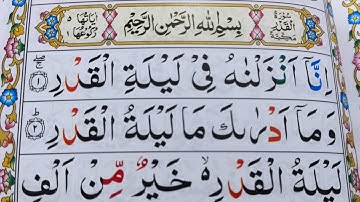 سُوْرَةُ الْقَدْرِ مَكِّيَّةٌ
بِسْمِ اللّٰهِ الرَّحْمٰنِ الرَّحِيْمِ
اٰيَاتُهَا ٥ رُكُوْعُهَا ١
اِنَّاۤ اَنْزَلْنٰهُ فِیْ لَيْلَةِ الْقَدْرِ ۚۖ ١
وَمَاۤ اَدْرٰىكَ مَا لَيْلَةُ الْقَدْرِ ؕ ٢
لَيْلَةُ الْقَدْرِ ۙ۬ خَيْرٌ مِّنْ اَلْفِ